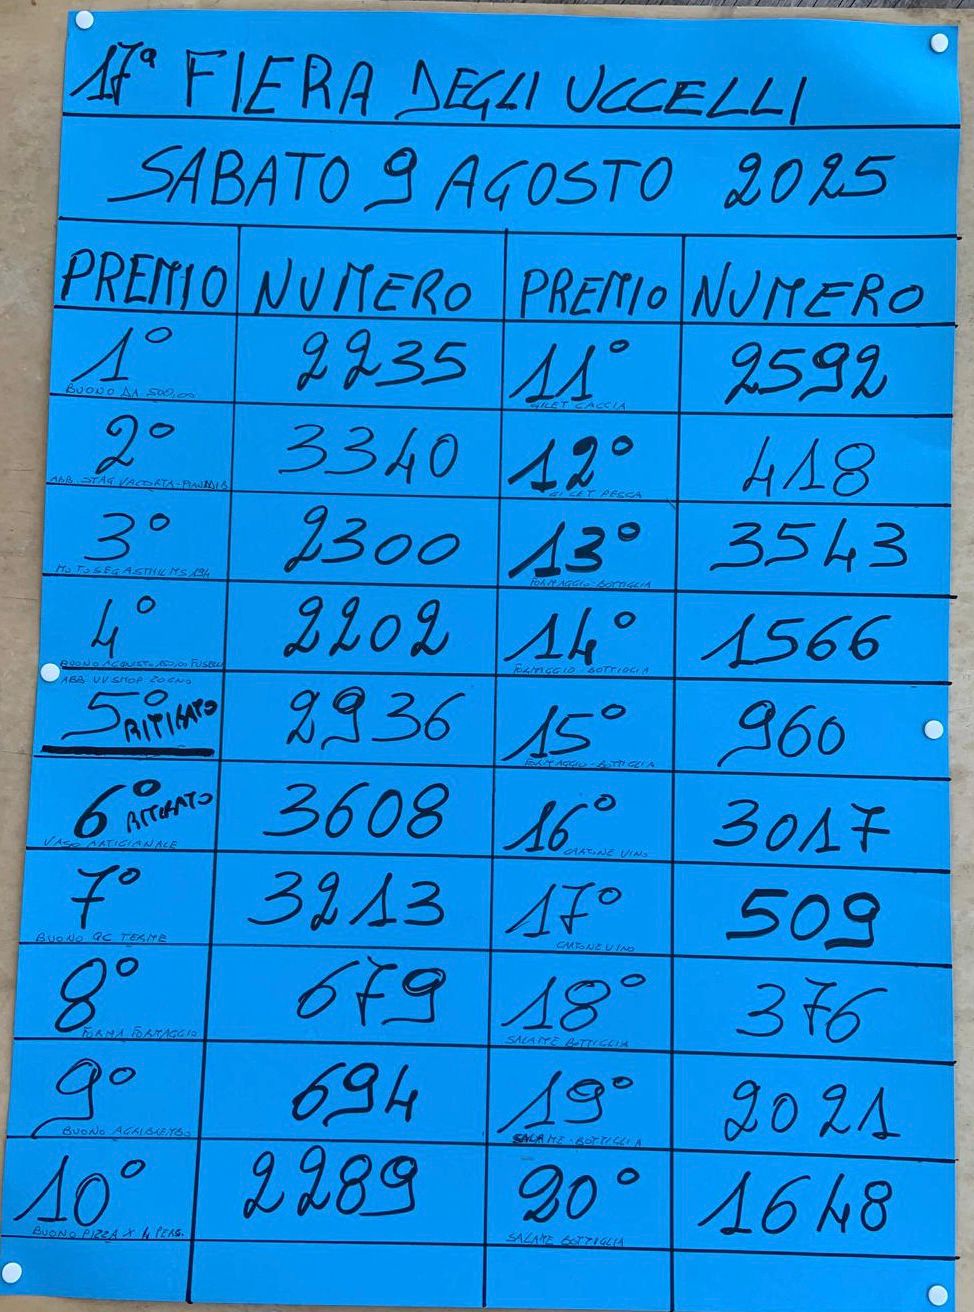 17ª FIERA DEGLI UCCELLI
SABATO 9 AGOSTO 2025
PREMIO NUMERO PREMIO NUMERO
1° 2235 11° 2592
BUONO DA 500,00 GILET CACCIA
2° 3340 12° 418
ABB. STAG VALTORTA-PIANI GILET PESCA
3° 2300 13° 3543
MOTOSEGA STIHL MS 194 FORMAGGIO-BOTTIGLIA
4° 2202 14° 1566
BUONO ACQUISTO FORMAGGIO-BOTTIGLIA
ABB UV SHOP ZOGNO
5° RITIRATO 2936 15° 960
FORMAGGIO-BOTTIGLIA
6° RITIRATO 3608 16° 3017
VASO ARTIGIANALE CARTONE VINO
7° 3213 17° 509
BUONO QC TERME CARTONE VINO
8° 679 18° 376
FORMA FORMAGGIO SALAME BOTTIGLIA
9° 694 19° 2021
BUONO AGRIBREMBO SALAME-BOTTIGLIA
10° 2289 20° 1648
BUONO PIZZA X 4 PERS. SALAME BOTTIGLIA